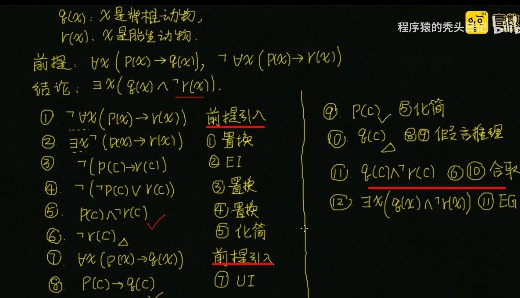 q(x): x是脊椎动物,
程序猿的秃头
r(x): x是胎生动物.
前提: ∀x(p(x)→q(x)), ¬∀x(p(x)→r(x))
结论: ∃x(q(x)∧¬r(x)).
① ¬∀x(p(x)→r(x)) 前提引入
② ∃x¬(p(x)→r(x)) ①置换
③ ¬(p(c)→r(c)) ②EI
④ ¬(¬p(c)∨r(c)) ③置换
⑤ p(c)∧¬r(c) ④置换
⑥ ¬r(c) ⑤化简
⑦ ∀x(p(x)→q(x)) 前提引入
⑧ p(c)→q(c) ⑦UI
⑨ p(c) ⑤化简
⑩ q(c) ⑧⑨假言推理
⑪ q(c)∧¬r(c) ⑥⑩合取
⑫ ∃x(q(x)∧¬r(x)) ⑪EG